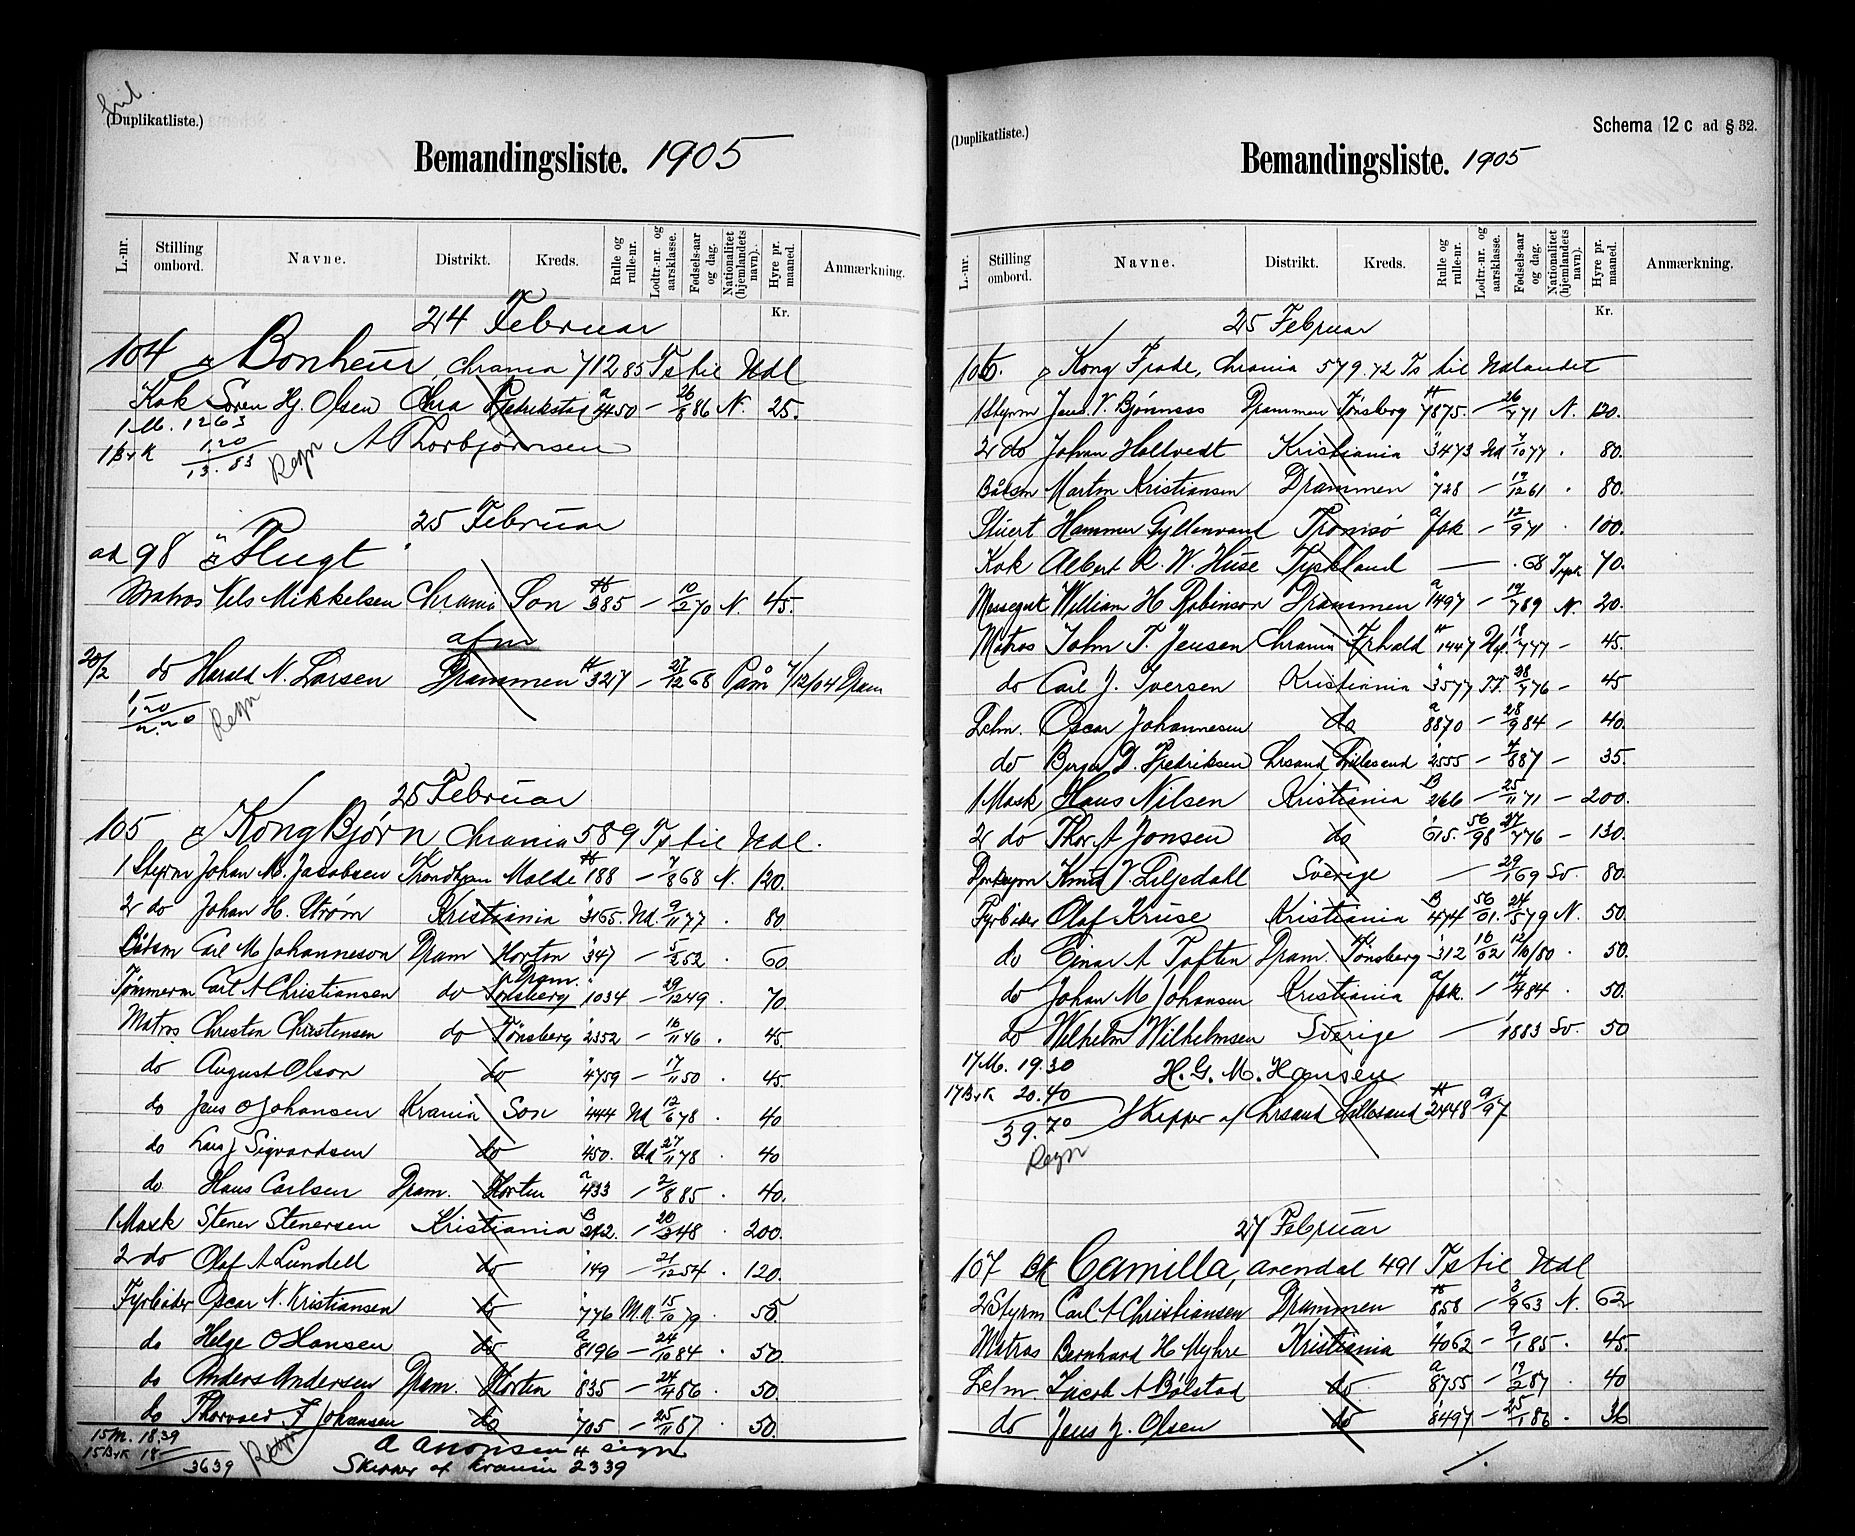 (Duplikatliste.)
Bemandingsliste. 1905
L.-nr. Stilling ombord. Navne. Distrikt. Kreds. Rulle og rulle-nr. Lodtr.-nr. og aarsklasse. Fødsels-aar og dag. Nationalitet (hjemlandets navn). Hyre pr. maaned. Anmærkning.
Kr.
24 Februar
104 Bonheur, Chrania 71285 Ts til Udl
Kok Søren Hj. Olsen Chra Fredrikstad a 4450 — 26/8 86 N. 25.
1 M. 1263
1 B&K 1.20 A Thorbjørnsen
13.83 Regn
25 Februar
ad 98 Flugt
Matros Nils Mikkelsen Chrania Son H 385 — 10/2 70 N. 45.
afm
20/2 do Harald N. Larsen Drammen H 3217 — 27/12 68 Paam 7/12/04 Dram
1.20
2.20 Regn
25 Februar
105 Kong Bjørn Chrania 589 Ts til Udl.
1 Styrm Johan M. Jacobsen Trondhjem Molde H 188 — 7/8 68 N. 120.
2 do Johan H. Strøm Kristiania " 3165. Ud 9/11 77 . 80
Båtsm Carl M Johanneson Dram Horton " 347 — 5/2 52 . 60.
Tømmerm Carl A Christiansen do Tønsberg Dram. " 1034 — 29/12 49 . 70
Matros Christen Christensen do Tønsberg " 2352 — 16/11 46 . 45.
do August Olson do " 4759 — 17/11 50 . 45.
do Jens O Johansen Krania Son " 444 Ud 12/6 78 . 40
do Lars J Sigvardsen do " 450. Ud 27/11 78 . 40
do Hans Carlsen Dram. Horten a 433 — 2/8 85 . 40.
1 Mask Stener Stenersen Kristiania B 212. — 20/3 48 . 200.
2 do Olaf A Lundell do " 149 — 21/12 54 . 120.
Fyrbøder Oscar N. Kristiansen do " 776 M.N. 15/10 79 . 50
do Helge O Hansen do a 8196 — 24/10 84 . 50.
do Anders Andersen Dram. Horten " 835 — 24/4 86 . 50
do Thorvald F Johansen do " 705 — 25/11 87 . 50.
15 M. 18.39 A Aronsen
15 B&K 18 — Skipper af Krania 2339
3639 Regn
(Duplikatliste.)
Schema 12 c ad § 32.
Bemandingsliste. 1905
L.-nr. Stilling ombord. Navne. Distrikt. Kreds. Rulle og rulle-nr. Lodtr.-nr. og aarsklasse. Fødsels-aar og dag. Nationalitet (hjemlandets navn). Hyre pr. maaned. Anmærkning.
Kr.
25 Februar
106. Kong Frode, Chrania 579.72 Ts til Udlandet
1 Styrm Jens V. Bjønness Drammen Tønsberg H 7875. — 26/7 71 N. 120.
2 do Johan Holtvedt Kristiania " 3473 Ud 7/10 77 . 80.
Båtsm Martin Kristiansen Drammen " 728 — 19/12 61 . 80.
Stuert Hammer Gyldenvand Tromsø a Jak — 12/9 71 . 100.
Kok Albert R. W. Huse Tyskland — . 68 Tysk 70.
Messegut William H Robinson Drammen a 1497 — 19/7 89 N. 20.
Matros John T. Jensen Chrania Frhald H 1447 18/7 77 — 45.
do Carl J. Iversen Kristiania " 3577 T.T. 28/7 76 — 45
Letm. Oscar Johannesen do a 8870 — 28/9 84 — 40.
do Birger D. Fredriksen Crsand Lillesand " 2555 — 7/8 87 — 35.
1 Mask Hans Nilsen Kristiania B 266 — 25/11 71 — 200.
2 do Thor A Jonsen do " 615. 56/98 27/7 76 — 130.
Knut V Liljedahl Sverige — 29/1 69 Sv. 80.
Fyrbøder Olaf Kruse Kristiania B 474 56/01. 24/5 79 N. 50.
do Einar A Toften Dram. Tønsberg " 312 16/02 12/10/80 . 50.
do Johan M Johansen Kristiania a Jak. — 14/4 84 . 50.
do Wilhelm Wilhelmsen Sverige — 1883 Sv. 50
17 M. 19.30 H. G. M. Hansen
17 B&K 20.40 Skipper af Crsand Lillesand H 2448 9/97
39.70
Regn
27 Februar
107 Bk Camilla, Arendal 491 Ts til Udl
2 Styrm Carl A Christiansen Drammen H 858 — 3/9 63 N. 62
Matros Bernhard H Myhre Kristiania " 4062 — 9/1 85 . 45.
Letm. Jacob A Bølstad do a 8755 — 19/2 87 . 40
do Jens J. Olsen do " 8497 — 25/1 86 . 36